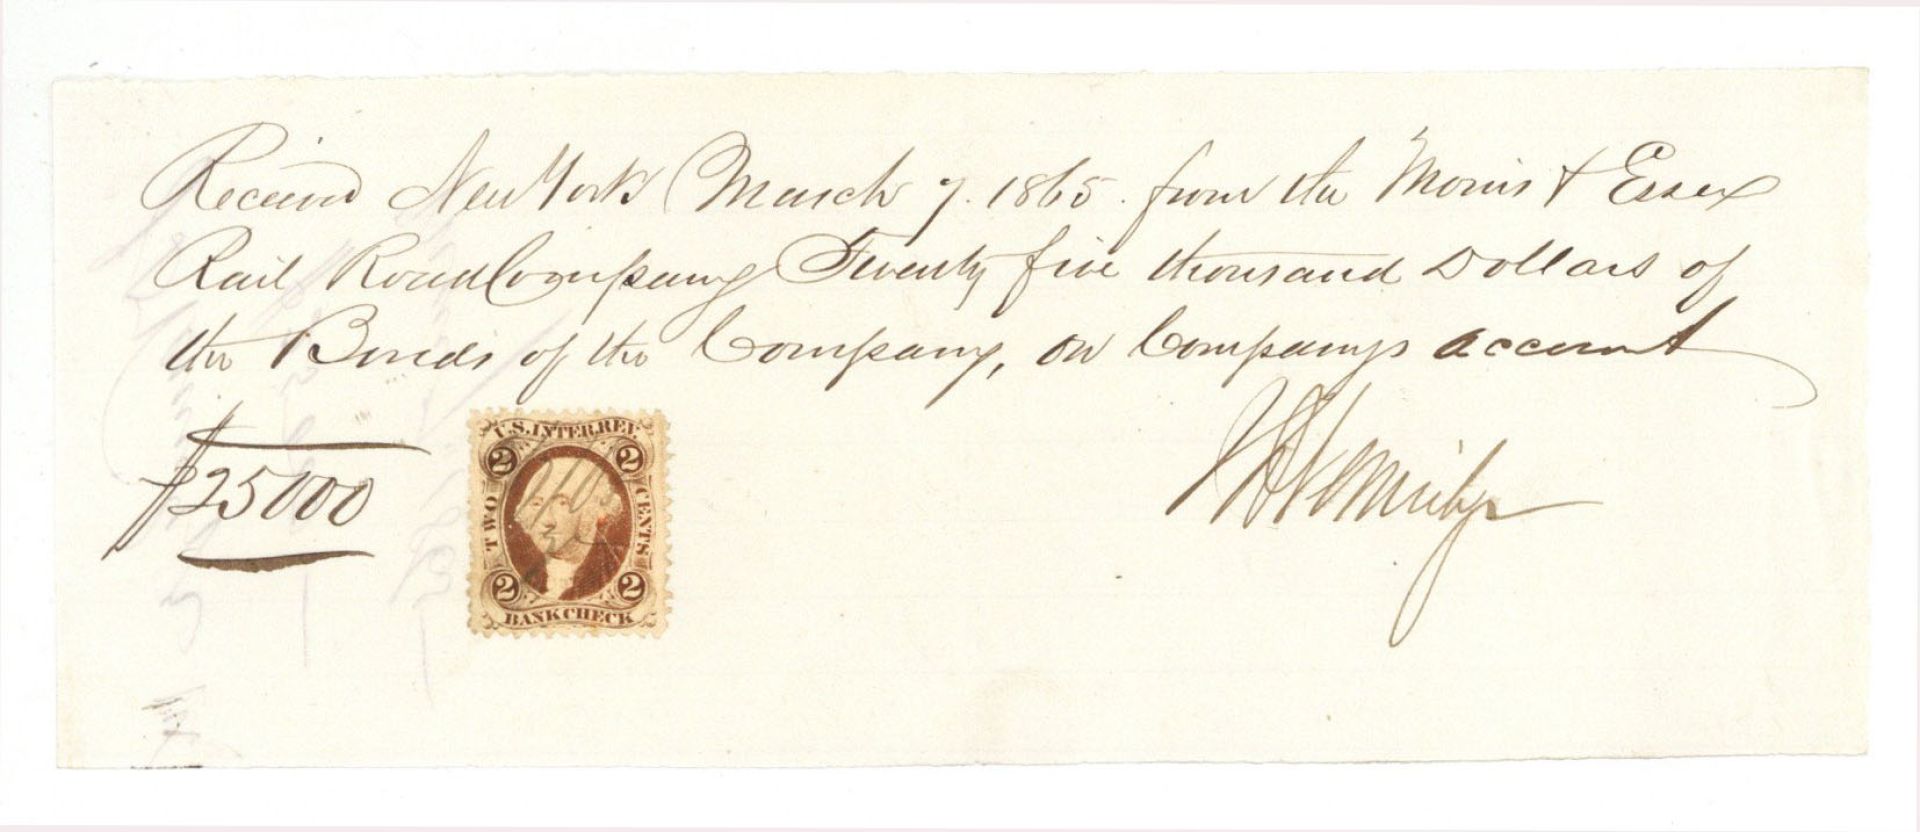 Received New York March 7. 1865. from the Morris & Essex
Rail Road Company Twenty five thousand Dollars of
the Bonds of the Company, on Companys account
$25000
U.S. INTER. REV.
2 2
TWO CENTS
2 2
BANK CHECK